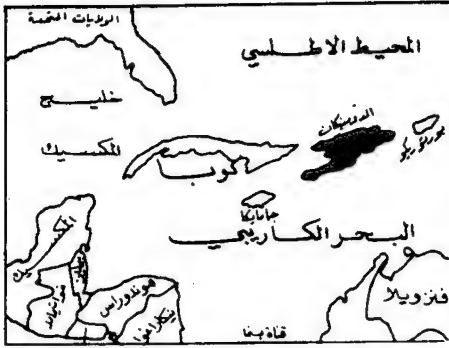 الولايات المتحدة
المحيط الاطلسي
خليج
المكسيك
الدومينيكان
بورتوريكو
كوبا
جامايكا
البحر الكاريبي
المكسيك
هوندوراس
نيكاراغوا
قناة بنما
فنزويلا